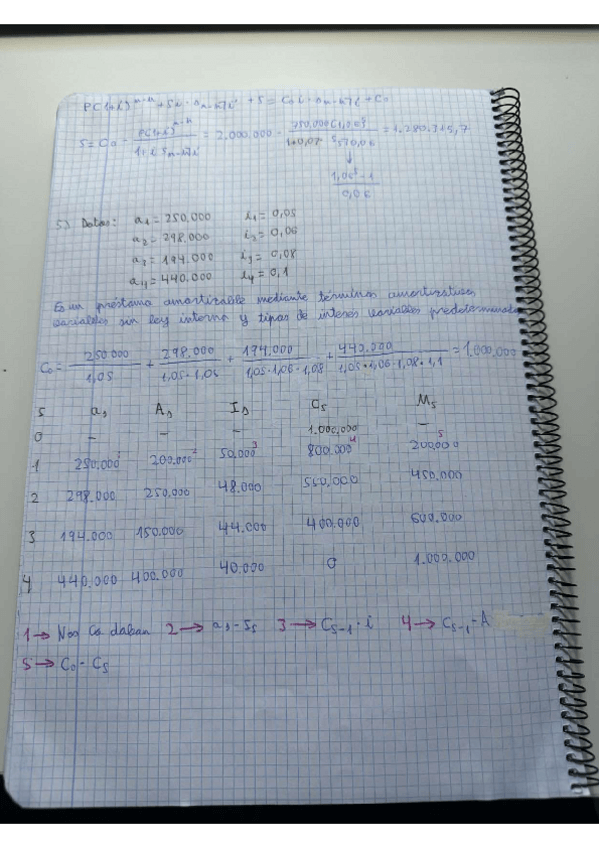 S = Co - = 2.000.000 - = 1.280.715,7
1,06⁵ - 1
0,06
5) Datos: a1 = 250.000 i1 = 0,05
a2 = 298.000 i2 = 0,06
a3 = 194.000 i3 = 0,08
a4 = 440.000 i4 = 0,1
Es un préstamo amortizable mediante términos amortizativos
variables sin ley interna y tipos de interés variables predeterminados
Co = 250.000/1,05 + 298.000/1,05·1,06 + 194.000/1,05·1,06·1,08 + 440.000/1,05·1,06·1,08·1,1 = 1.000.000
S as As Is Cs Ms
0 - - - 1.000.000 -
1 250.000¹ 200.000² 50.000³ 800.000⁴ 200.000⁵
2 298.000 250.000 48.000 550.000 450.000
3 194.000 150.000 44.000 400.000 600.000
4 440.000 400.000 40.000 0 1.000.000
1 → Nos la daban 2 → as - Is 3 → Cs-1 · i 4 → Cs-1 - A
5 → Co - Cs